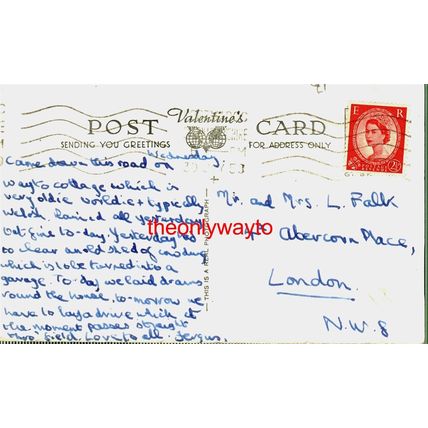 Valentine's
POST CARD
SENDING YOU GREETINGS FOR ADDRESS ONLY
E R
2½D
Wednesday
Came down this road on
way to cottage which is
very olde worlde & typically
Welsh. Rained all yesterday
but fine to-day. Yesterday had
to clear an old shed of
which is to be turned into a
garage. To-day we laid drains
round the house, to-morrow we
have to lay a drive which at
the moment passes straight
thro' field. Love to all. Fergus.
THIS IS A REAL PHOTOGRAPH
Mr. and Mrs. L. Falk
Abercorn Place,
London.
N.W.8
theonlywayto